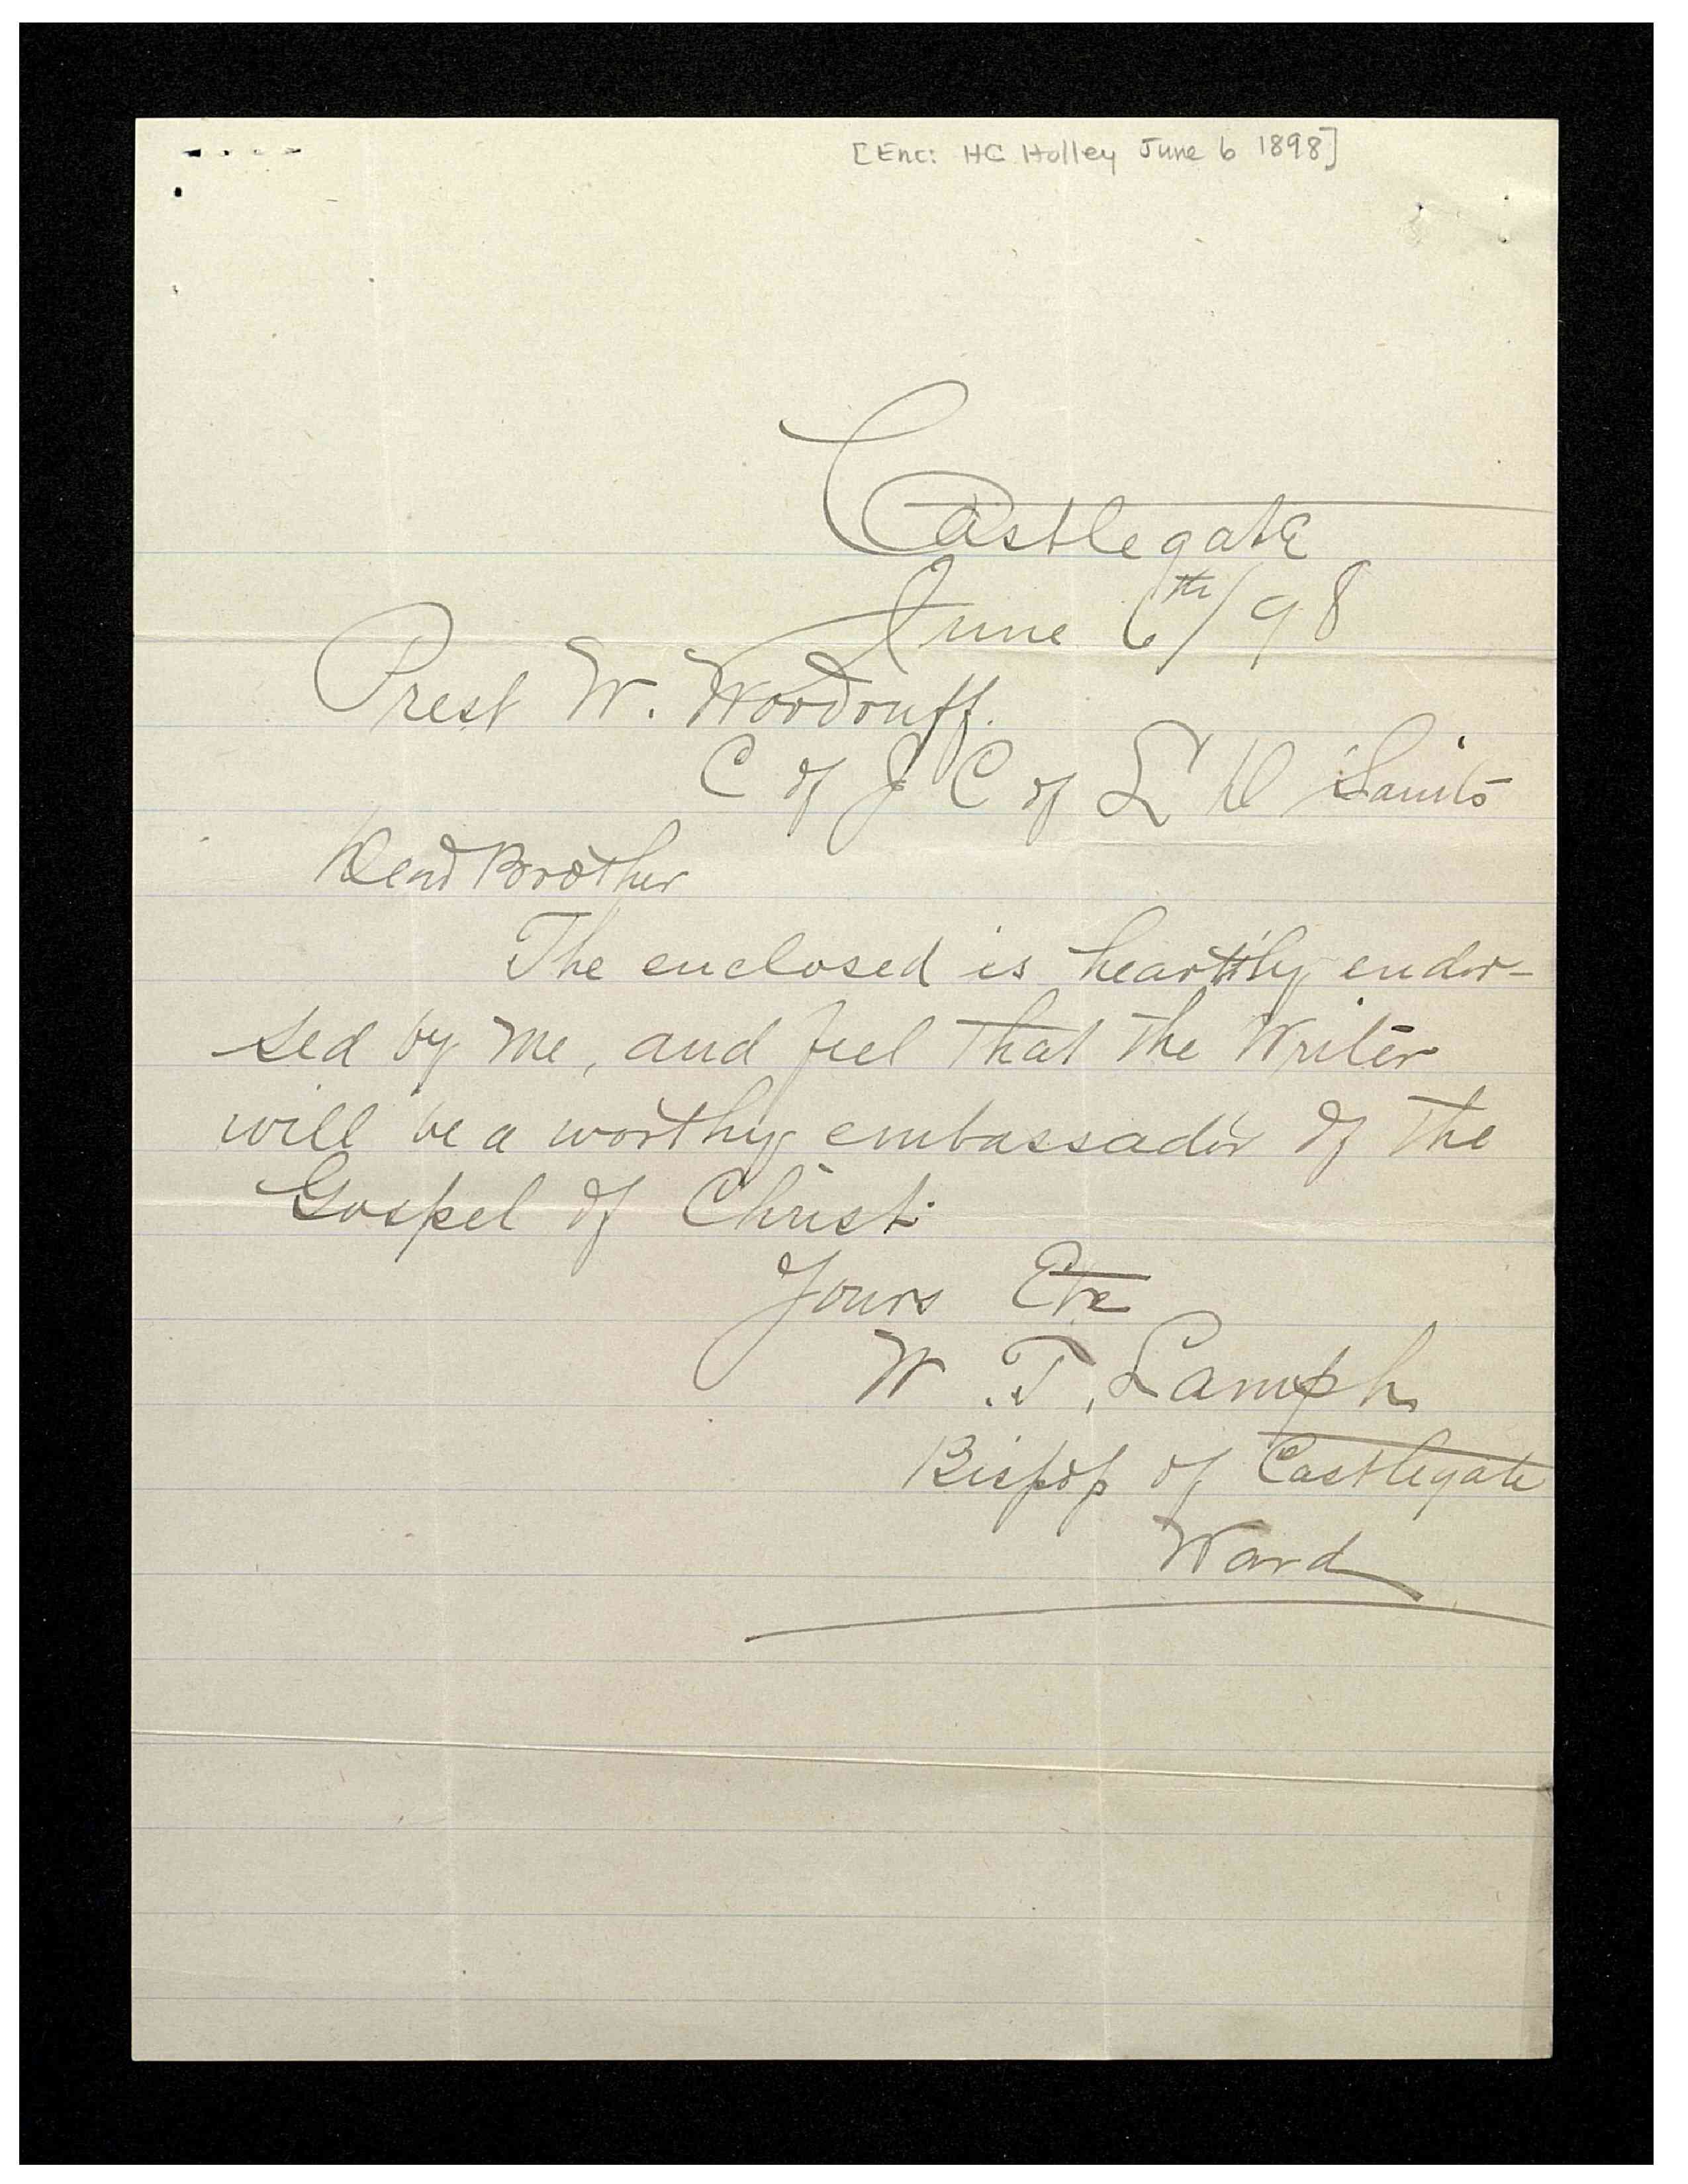 [Enc: HC Holley June 6 1898]
Castlegate
June 6th/98
Prest W. Woodruff.
C of J C of L D Saints
Dear Brother
The enclosed is heartily endor-
sed by me, and feel that the Writer
will be a worthy embassador of the
Gospel of Christ.
Yours Etc
W. T, Lamph
Bispop of Castlegate
Ward